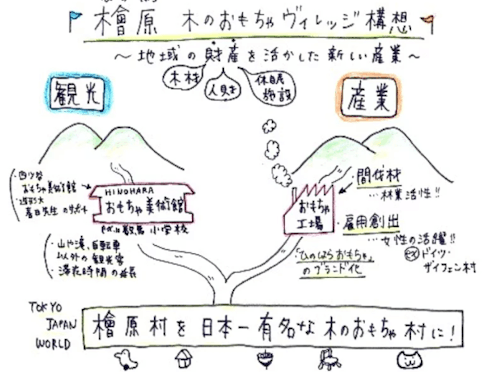 檜原 木のおもちゃヴィレッジ構想
～地域の財産を活かした新しい産業～
木材
人財
休眠
施設
観光
産業
・四ツ谷
おもちゃ美術館
春日先生のサポート
HINOHARA
おもちゃ美術館
数馬小学校
・山や滝、自転車
以外の観光客
・滞在時間の延長
おもちゃ
工場
間伐材
…林業活性!!
雇用創出
…女性の活躍!!
ex ドイツ・
ザイフェン村
「ひのはらおもちゃ」
のブランド化
TOKYO
JAPAN
WORLD
檜原村を日本一有名な木のおもちゃ村に!